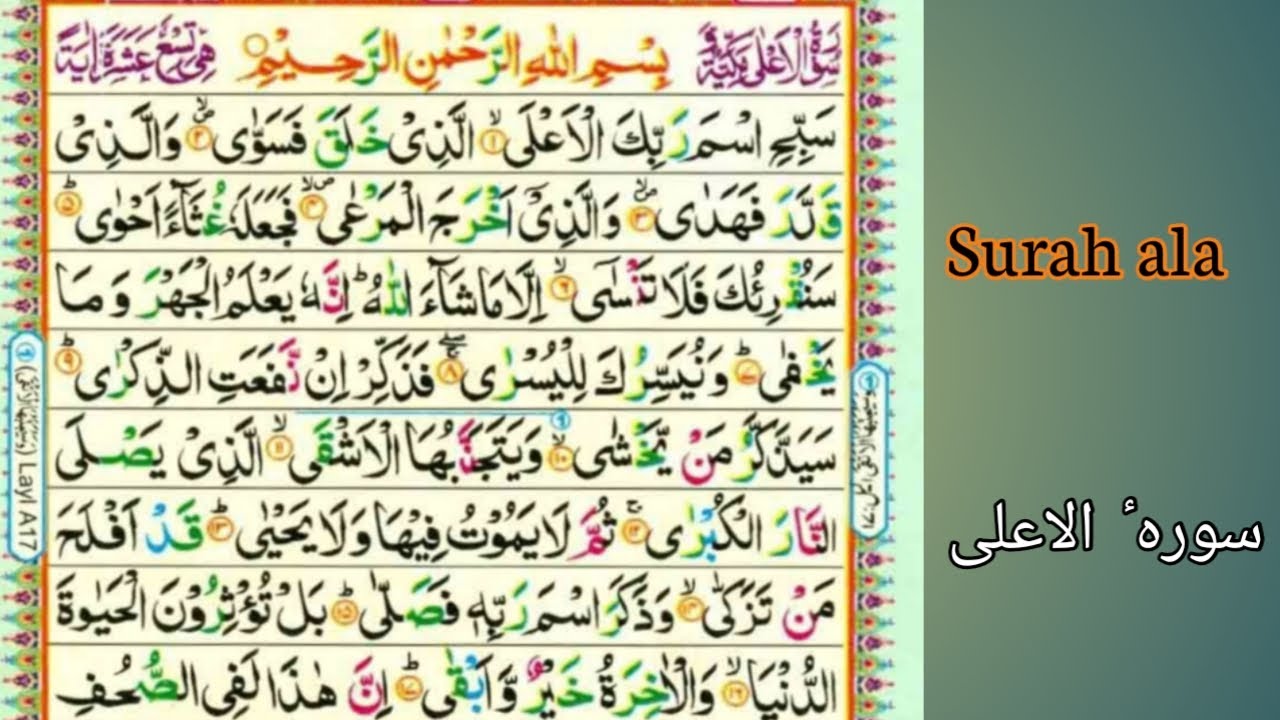 سُوْرَةُ الْاَعْلٰى مَكِّيَّةٌ بِسْمِ اللّٰهِ الرَّحْمٰنِ الرَّحِيْمِ هِيَ تِسْعَ عَشَرَةَ اٰيَةً
سَبِّحِ اسْمَ رَبِّكَ الْاَعْلَى ۙ۝۱ الَّذِىْ خَلَقَ فَسَوّٰى ۙ۝۲ وَالَّذِىْ
قَدَّرَ فَهَدٰى ۙ۝۳ وَالَّذِىْۤ اَخْرَجَ الْمَرْعٰى ۙ۝۴ فَجَعَلَهٗ غُثَآءً اَحْوٰى ؕ۝۵
سَنُقْرِئُكَ فَلَا تَنْسٰٓى ۙ۝۶ اِلَّا مَا شَآءَ اللّٰهُ ؕ اِنَّهٗ يَعْلَمُ الْجَهْرَ وَمَا
يَخْفٰى ؕ۝۷ وَنُيَسِّرُكَ لِلْيُسْرٰى ۝۸ فَذَكِّرْ اِنْ نَّفَعَتِ الذِّكْرٰى ؕ۝۹
سَيَذَّكَّرُ مَنْ يَّخْشٰى ۙ۝۱۰ وَيَتَجَنَّبُهَا الْاَشْقَى ۙ۝۱۱ الَّذِىْ يَصْلَى
النَّارَ الْكُبْرٰى ۚ۝۱۲ ثُمَّ لَا يَمُوْتُ فِيْهَا وَلَا يَحْيٰى ؕ۝۱۳ قَدْ اَفْلَحَ
مَنْ تَزَكّٰى ۙ۝۱۴ وَذَكَرَ اسْمَ رَبِّهٖ فَصَلّٰى ؕ۝۱۵ بَلْ تُؤْثِرُوْنَ الْحَيٰوةَ
الدُّنْيَا ۙ۝۱۶ وَالْاٰخِرَةُ خَيْرٌ وَّاَبْقٰى ؕ۝۱۷ اِنَّ هٰذَا لَفِى الصُّحُفِ
Layl A17
Surah ala
سورہٴ الاعلی